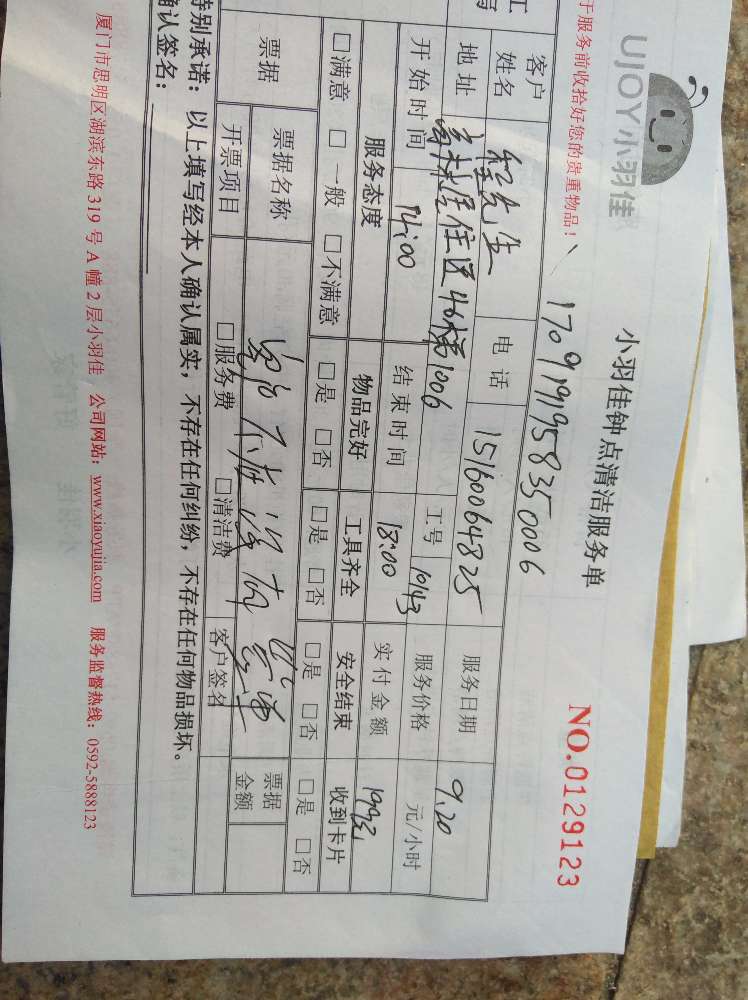 UJOY小羽佳
小羽佳钟点清洁服务单
NO.0129123
于服务前收拾好您的贵重物品!
1709191958350006
客户姓名 程先生 电话 15160064825 服务日期 9.20
地址 高林居住区40楼1006 工号 1043 服务价格 元/小时
开始时间 14:00 结束时间 18:00 实付金额
服务态度 物品完好 工具齐全 安全结束 收到卡片
□满意 □一般 □不满意 □是 □否 □是 □否 □是 □否 □是 □否
票据 票据名称 票据金额
开票项目 □服务费 □清洁费 客户签名
特别承诺:以上填写经本人确认属实,不存在任何纠纷,不存在任何物品损坏。
确认签名:
厦门市思明区湖滨东路319号A幢2层小羽佳 公司网站:www.xiaoyujia.com 服务监督热线:0592-5888123